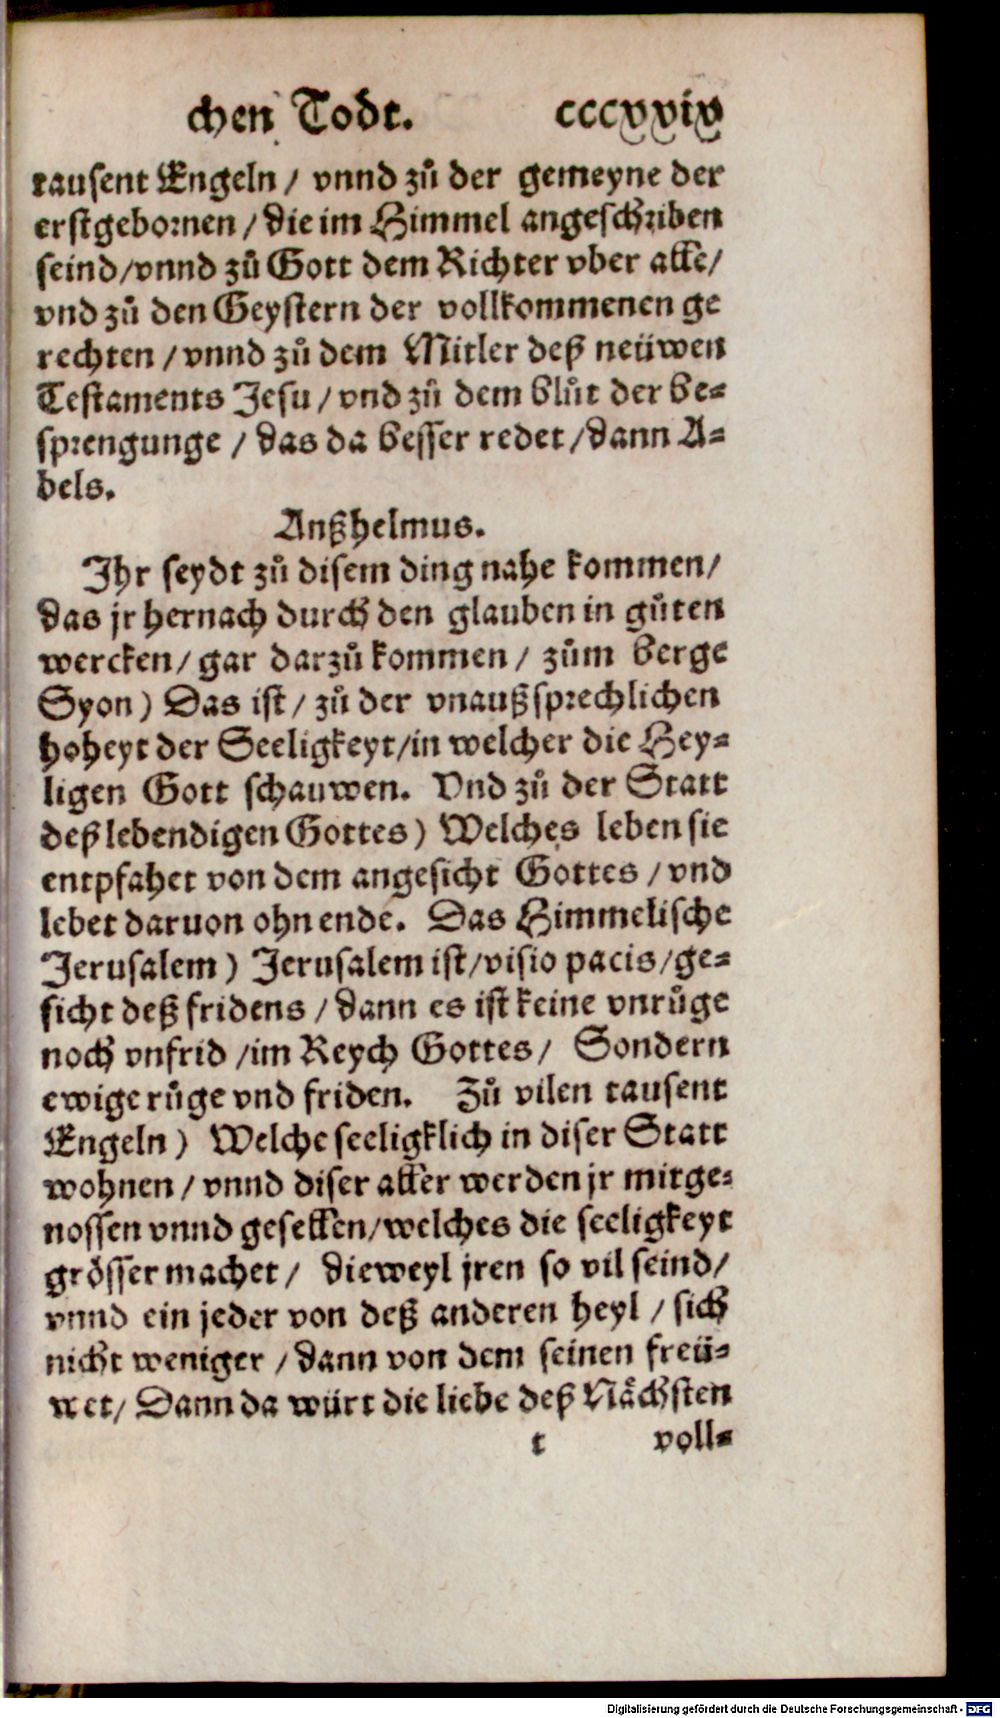 chen Todt. cccxxix
tausent Engeln / vnnd zů der gemeyne der
erstgebornen / die im Himmel angeschriben
seind/vnnd zů Gott dem Richter vber alle/
vnd zů den Geystern der vollkommenen ge
rechten / vnnd zů dem Mitler deß neüwen
Testaments Jesu / vnd zů dem blůt der be-
sprengunge / das da besser redet / dann A-
bels.
Anßhelmus.
Ihr seydt zů disem ding nahe kommen/
das jr hernach durch den glauben in gůten
wercken/ gar darzů kommen / zům berge
Syon) Das ist / zů der vnaußsprechlichen
hoheyt der Seeligkeyt/in welcher die Hey-
ligen Gott schauwen. Vnd zů der Statt
deß lebendigen Gottes) Welches leben sie
entpfahet von dem angesicht Gottes / vnd
lebet daruon ohn ende. Das Himmelische
Jerusalem) Jerusalem ist/visio pacis/ge-
sicht deß fridens / dann es ist keine vnrůge
noch vnfrid /im Reych Gottes/ Sondern
ewige růge vnd friden. Zů vilen tausent
Engeln) Welche seeligklich in diser Statt
wohnen / vnnd diser aller werden jr mitge-
nossen vnnd gesellen/welches die seeligkeyt
grösser machet / dieweyl jren so vil seind/
vnnd ein jeder von deß anderen heyl / sich
nicht weniger / dann von dem seinen freü-
wet/ Dann da würt die liebe deß Nächsten
t voll-
Digitalisierung gefördert durch die Deutsche Forschungsgemeinschaft - DFG